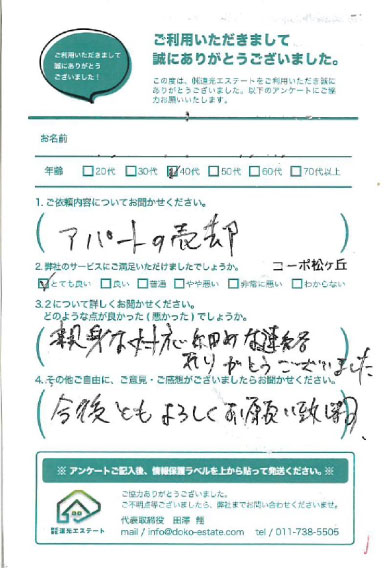 ご利用いただきまして
誠にありがとう
ございました!
ご利用いただきまして
誠にありがとうございました。
この度は、㈱道元エステートをご利用いただき誠に
ありがとうございました。以下のアンケートにご協
力お願いいたします。
お名前
年齢 □20代 □30代 ☑40代 □50代 □60代 □70代以上
1.ご依頼内容についてお聞かせください。
アパートの売却
2.弊社のサービスにご満足いただけましたでしょうか。 コーポ松ヶ丘
☑とても良い □良い □普通 □やや悪い □非常に悪い □わからない
3.2について詳しくお聞かせください。
どのような点が良かった(悪かった)でしょうか。
親身な対応 細めな連絡
ありがとうございました
4.その他ご自由に、ご意見・ご感想がございましたらお聞かせください。
今後ともよろしくお願い致します。
※ アンケートご記入後、情報保護ラベルを上から貼って発送ください。※
ご協力ありがとうございました。
ご不明点等ございましたら、弊社までお問い合わせくださいませ。
代表取締役 田澤
mail / info@doko-estate.com tel / 011-738-5505
道元エステート